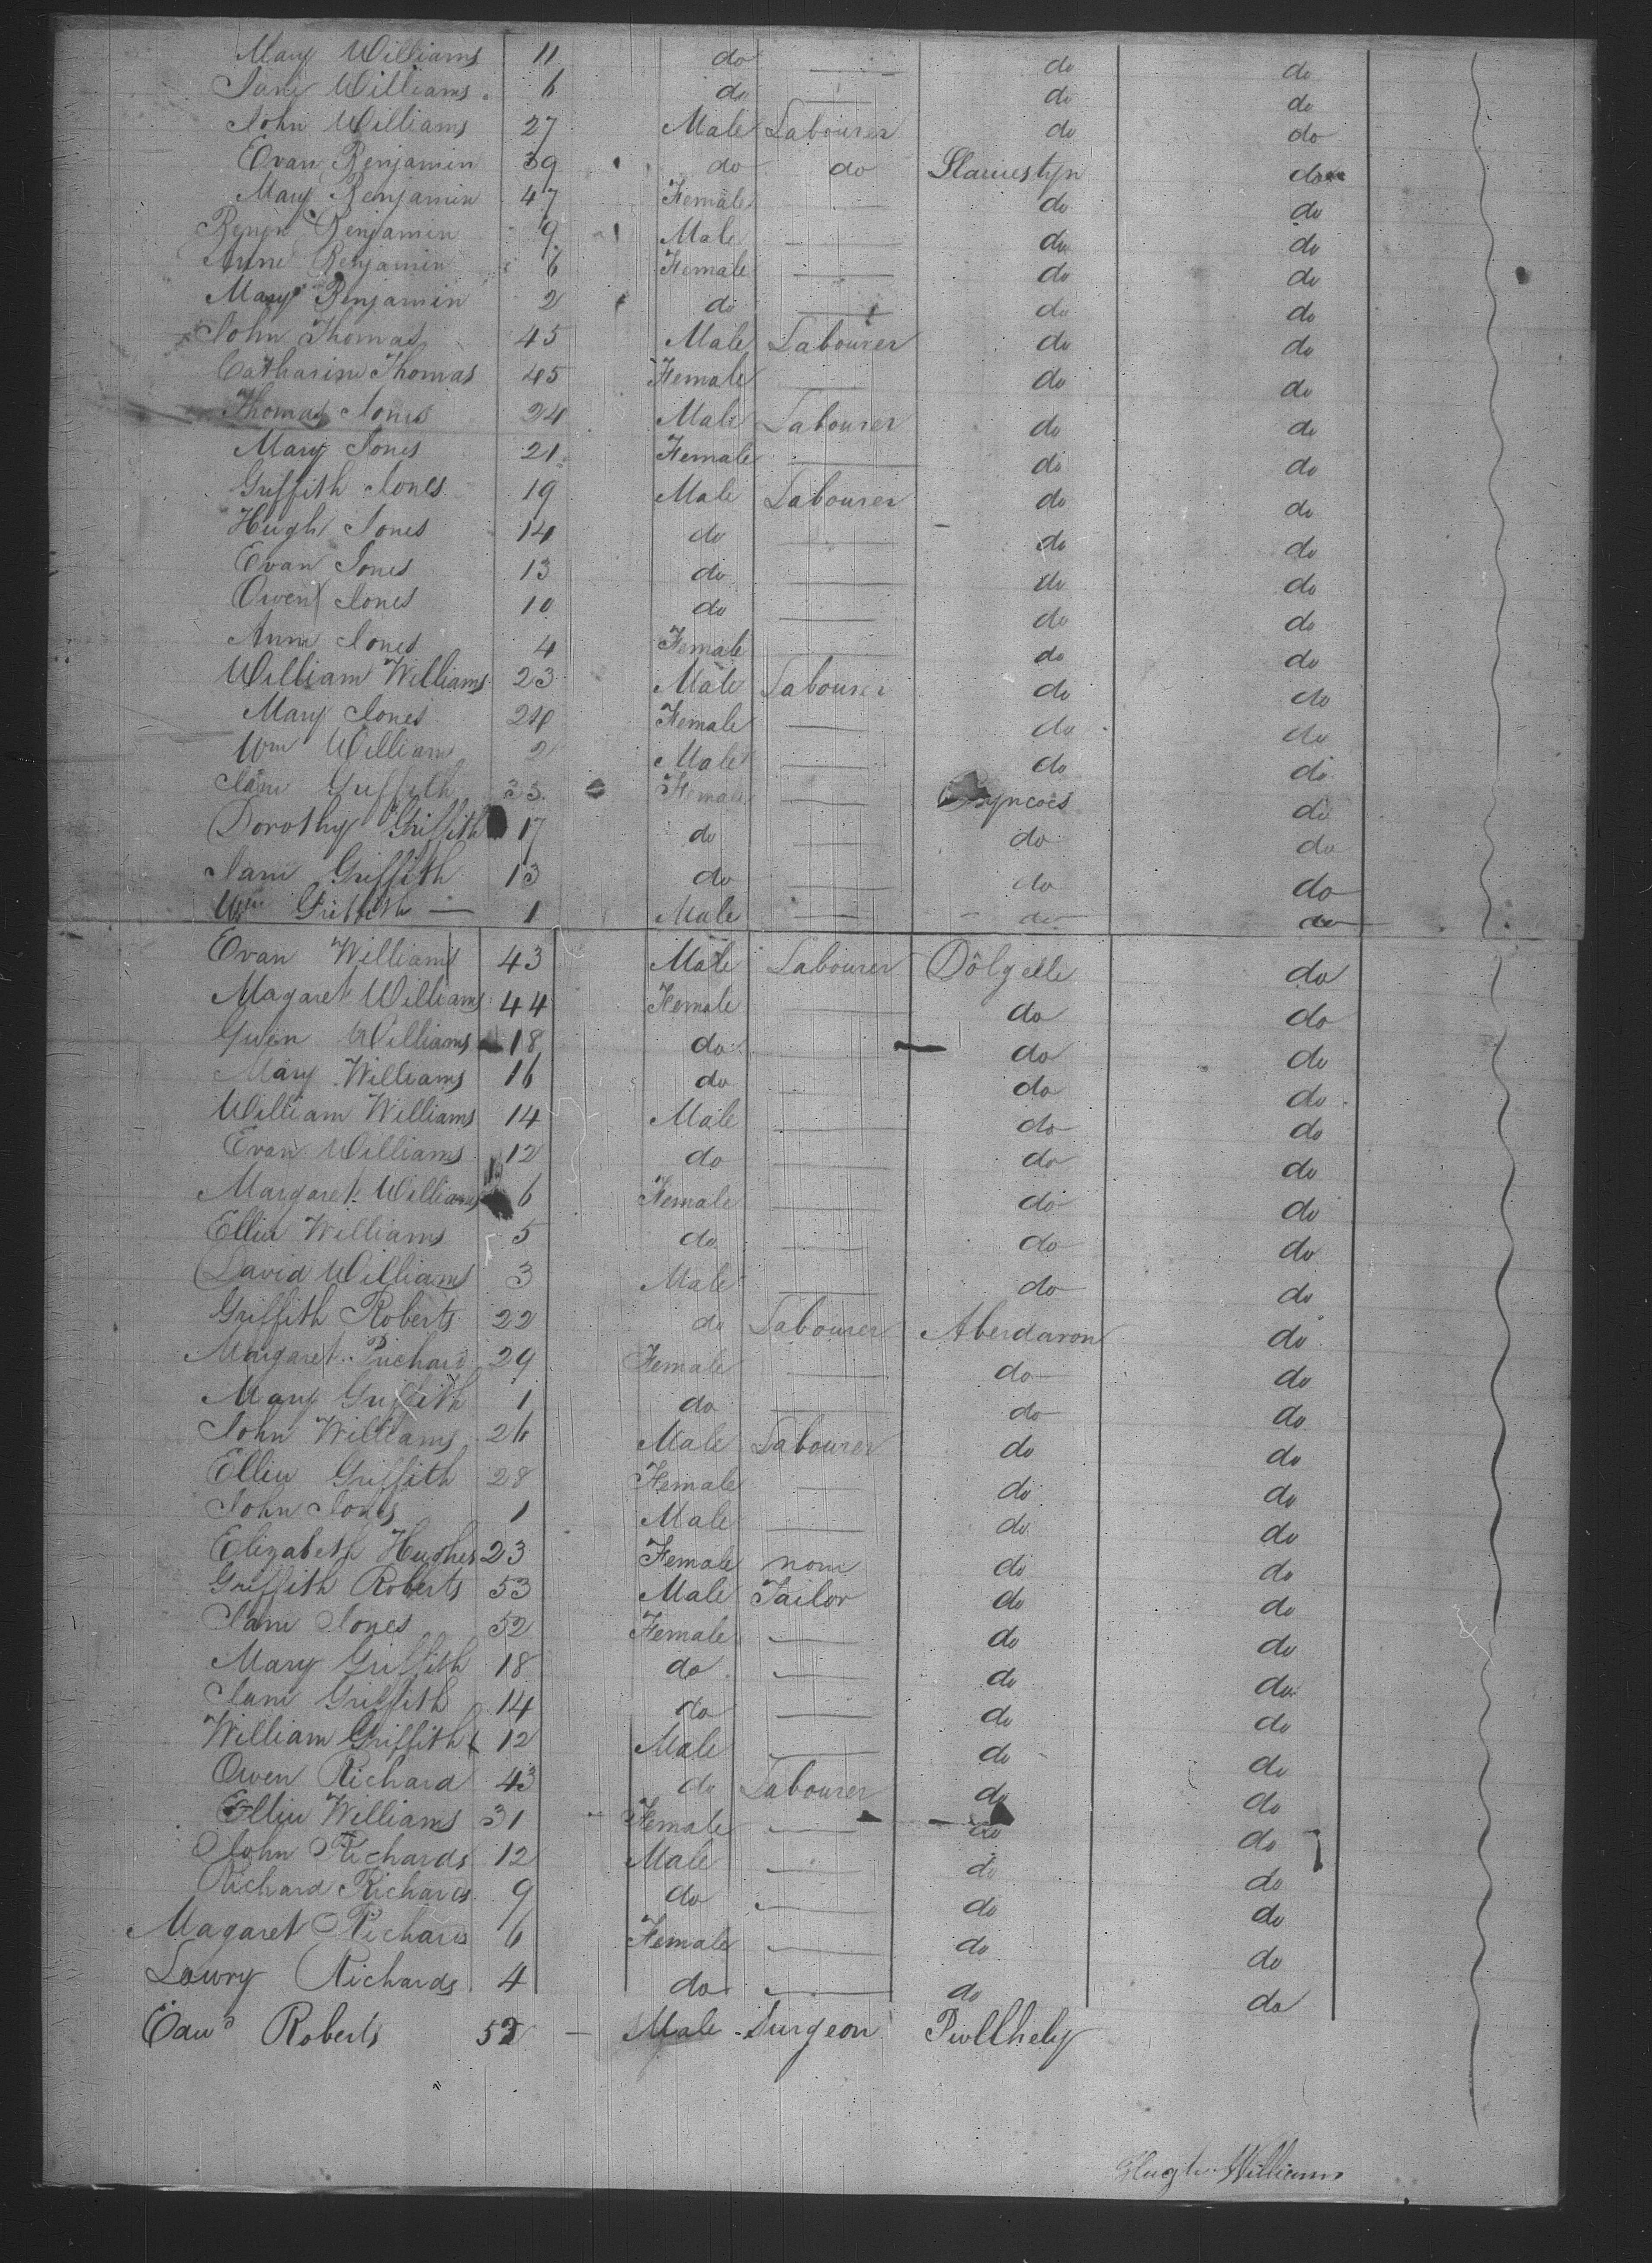 Mary Williams 11 do — do do
Jane Williams 6 do — do do
John Williams 27 Male Labourer do do
Evan Benjamin 39 do do Llaniestyn do
Mary Benjamin 47 Female — do do
Benjn Benjamin 9 Male — do do
Anne Benjamin 6 Female — do do
Mary Benjamin 2 do — do do
John Thomas 45 Male Labourer do do
Catharine Thomas 45 Female — do do
Thomas Jones 24 Male Labourer do do
Mary Jones 21 Female — do do
Griffith Jones 19 Male Labourer do do
Hugh Jones 14 do — do do
Evan Jones 13 do — do do
Owen Jones 10 do — do do
Anne Jones 4 Female — do do
William Williams 23 Male Labourer do do
Mary Jones 24 Female — do do
Wm Williams 2 Male — do do
Jane Griffith 33 Female — do
Dorothy Griffith 17 do — do do
Jane Griffith 13 do — do do
Wm Griffith — 1 Male — do do
Evan Williams 43 Male Labourer Dôlgelle do
Magaret Williams 44 Female — do do
Gwen Williams 18 do — do do
Mary Williams 16 do — do do
William Williams 14 Male — do do
Evan Williams 12 do — do do
Margaret Williams 6 Female — do do
Ellin Williams 5 do — do do
David Williams 3 Male — do do
Griffith Roberts 22 do Labourer Aberdaron do
Margaret Prichard 29 Female — do do
Mary Griffith 1 do — do do
John Williams 26 Male Labourer do do
Ellin Griffith 28 Female — do do
John Jones 1 Male — do do
Elizabeth Hughes 23 Female none do do
Griffith Roberts 53 Male Tailor do do
Jane Jones 52 Female — do do
Mary Griffith 18 do — do do
Jane Griffith 14 do — do do
William Griffith 12 Male — do do
Owen Richard 43 do Labourer do do
Ellin Williams 31 Female — do do
John Richards 12 Male — do do
Richard Richards 9 do — do do
Magaret Richards 6 Female — do do
Lowry Richards 4 do — do do
Edwd Roberts 52 — Male Surgeon Pwllhely
Hugh Williams